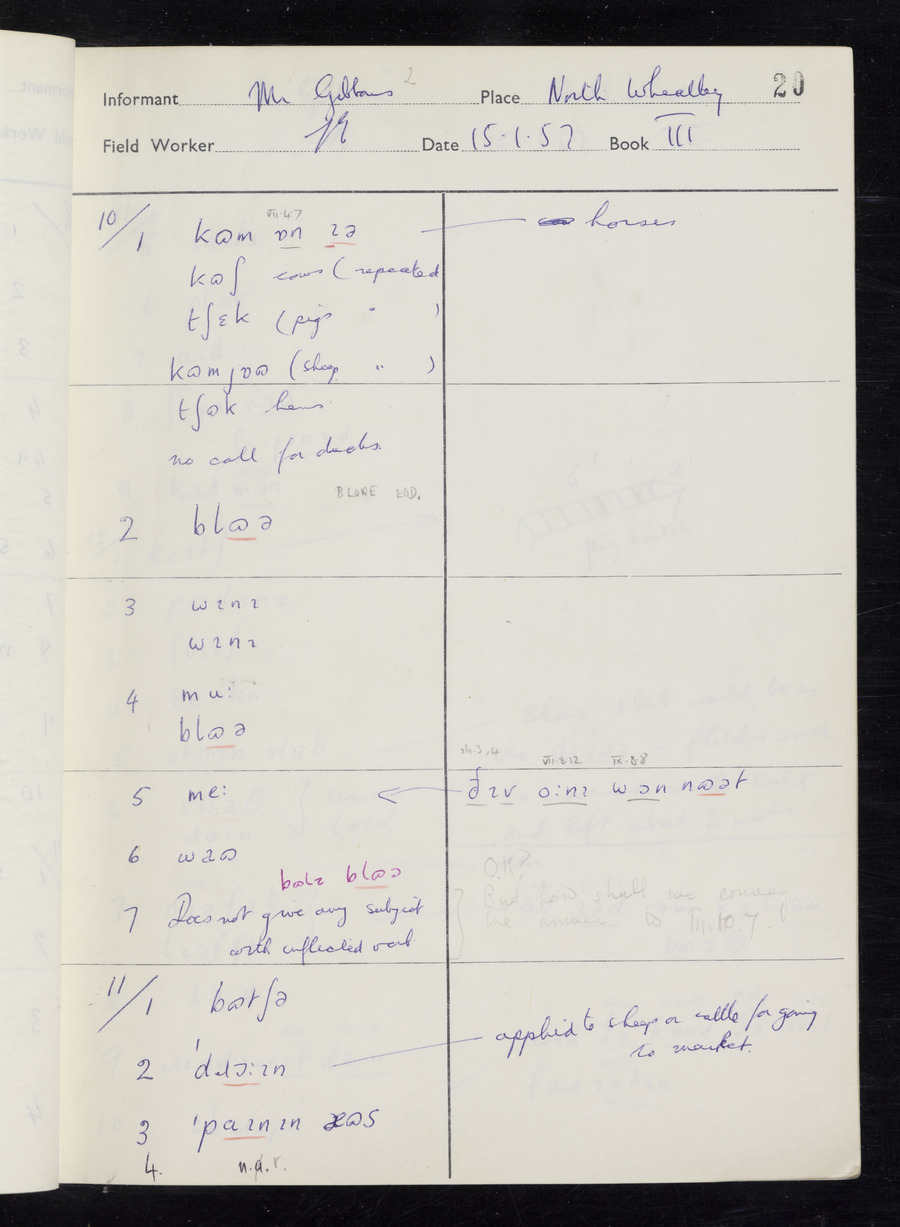 20
Informant Mr Gibbons 2 Place North Wheatley
Field Worker Date 15.1.57 Book III
VII.4.7
10/1 kɷm ɒn ɪə horses
kɷʃ cows (repeated
tʃɛk (pigs " )
kɷmjɒɷ (sheep " )
tʃɷk hens
no call for ducks.
BLORE EDD.
2 blɷə
3 wɪnɪ
wɪnɪ
4 mu:
blɷə
VII.8.12 IX.8.8
5 me: ðɪv ɔ:nɪ wɔn nɷət
6 wɪɷ
O.K?
bɷlɪ blɷə
But how shall we convey
7 Does not give any subject
the answer to III.10.7.
with inflected verb
11/1 bɷtʃə
applied to sheep or cattle for going
to market.
2 'dɹɔ:ɪn
3 'paɪnɪn æɷs
4. n.a.r.